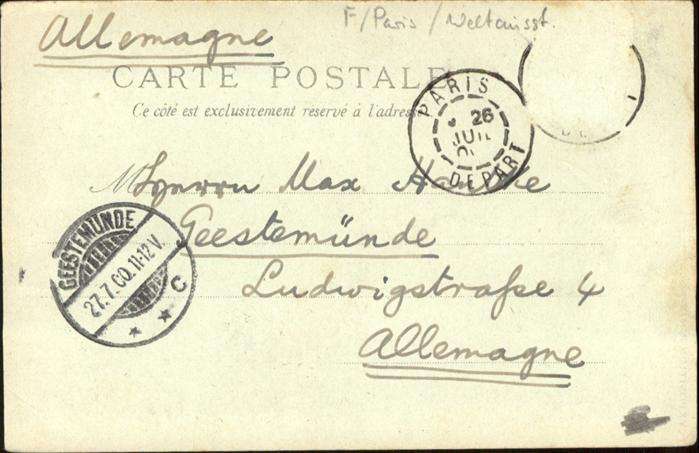 F/Paris/Weltausst.
Allemagne
CARTE POSTALE
Ce côté est exclusivement reservé à l'adresse
PARIS
26
JUIL
DEPART
Herrn Max
Geestemünde
Ludwigstraße 4
Allemagne
GEESTEMÜNDE
27.7.00.11-12V.
* * C